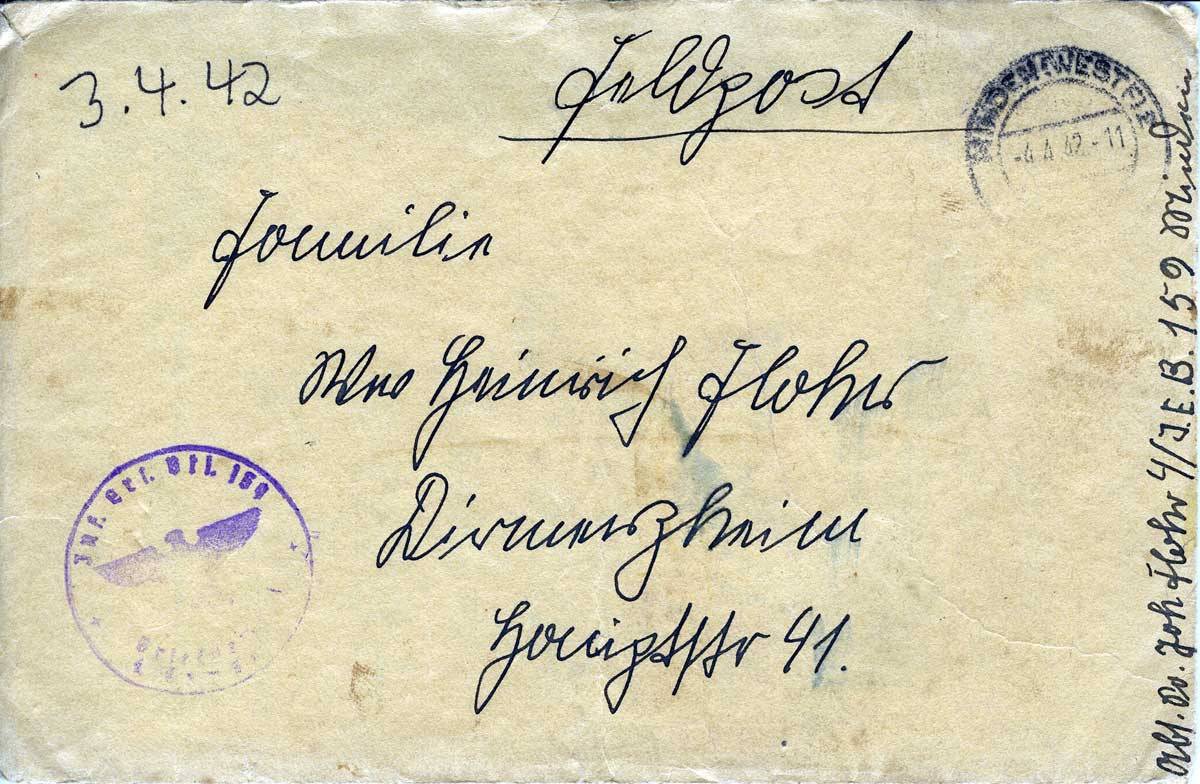 3.4.42
Feldpost
MINDEN (WESTF)
-4.4.42.-11
Familie
Wwe Heinrich Flohr
Dirmerzheim
Hauptstr 41.
Inf. Ers. Btl. 159
Abs. Joh Flohr 4/J.E.B. 159 Minden